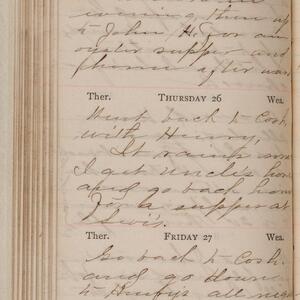 evening then up
to John H. for an
oyster supper and
home after ward
Ther. THURSDAY 26 Wea.
Went back to Cosh.
with Henry.
It rains some
I get uncle's horse
and go back home
for a supper at
Lewis.
Ther. FRIDAY 27 Wea.
Go back to Cosh.
and go down
to all night